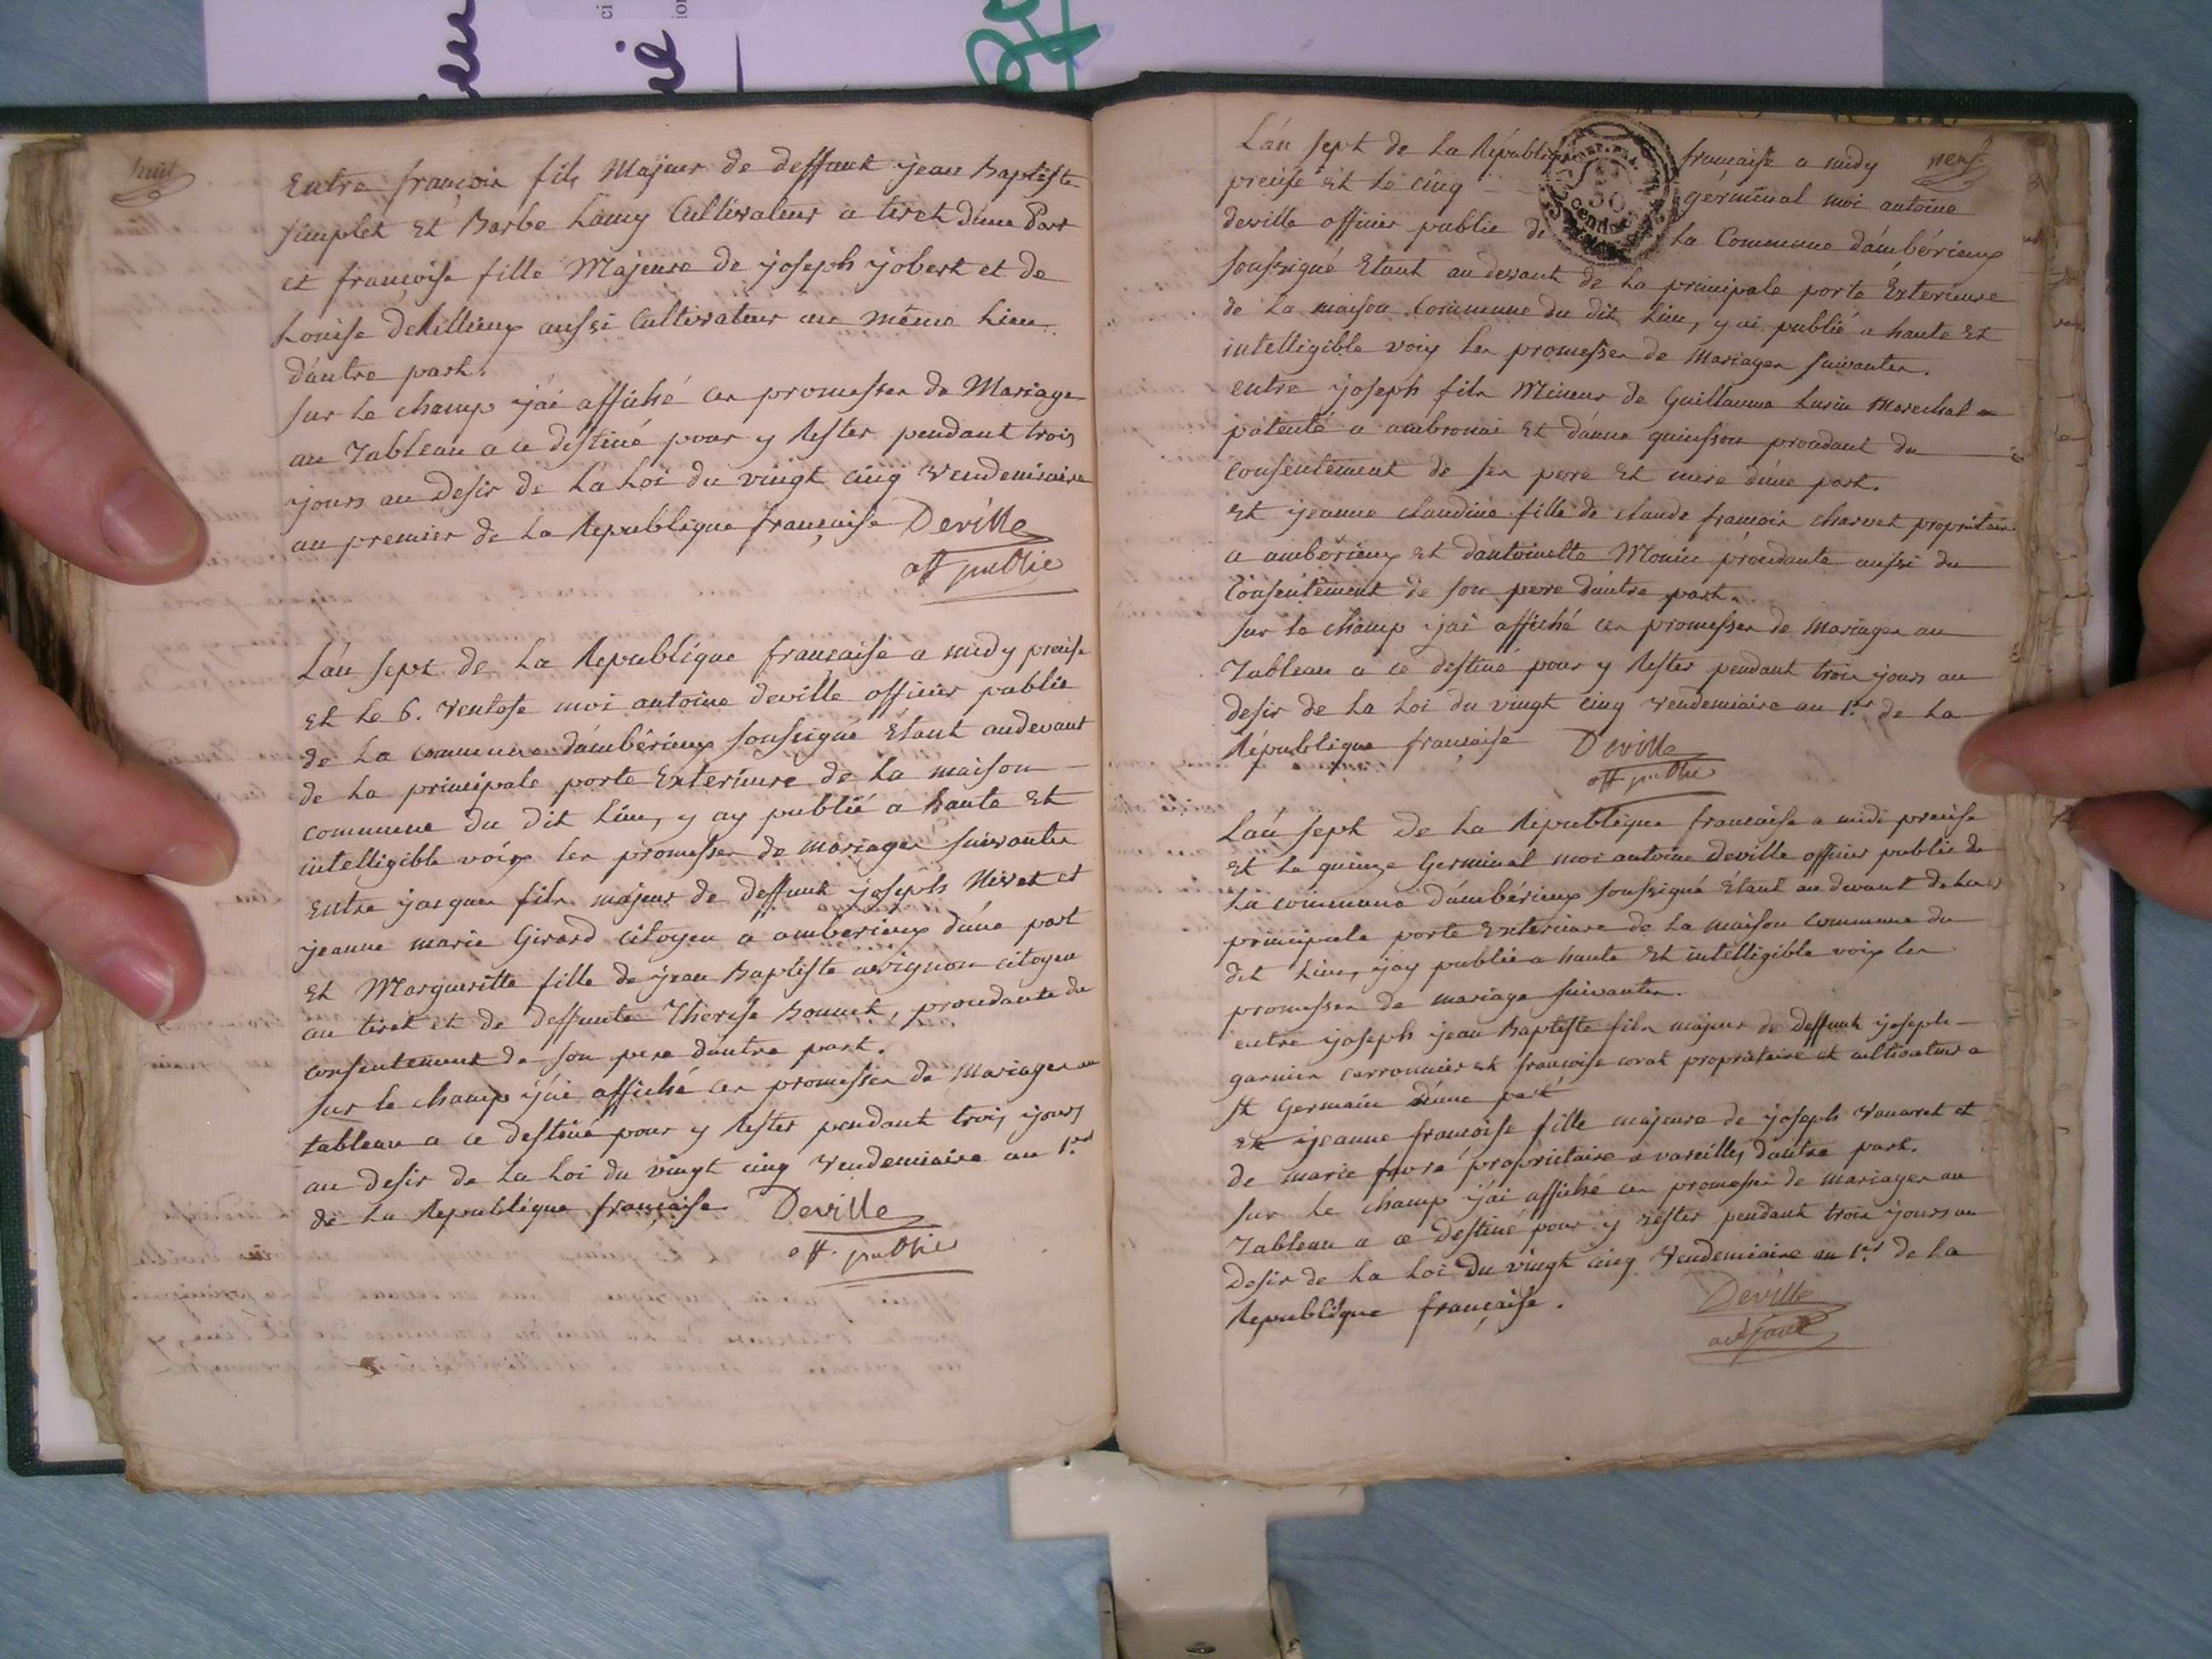 huit
Entre françois fils Majeur de deffunt jean Baptiste
simplet et Barbe Lamy Cultivateur a tiret d'une Part
et françoise fille Majeure de joseph jobert et de
Louise delillieux aussi Cultivateur au même Lieu
d'autre part.
sur le champ j'ai affiché ces promesses de Mariage
au Tableau a ce destiné pour y Rester pendant trois
jours au Desir de La Loi du vingt cinq Vendemiaire
an premier de La Republique française Deville
off public
L'an sept de La Republique française a midy precise
et Le 6. Ventose moi antoine deville officier public
de La commune d'ambérieux soussigné Etant audevant
de La principale porte Exterieure de La maison
commune du dit Lieu, y ay publié a haute Et
intelligible voix les promesses de mariages suivantes
Entre jacques fils majeur de deffunt joseph Nivet et
jeanne marie Girard Citoyen a amberieux d'une part
Et Margueritte fille de jean Baptiste avignon citoyen
au tiret et de deffunte Therese Bonnet, procedante du
consentement de son pere d'autre part.
sur le champ j'ai affiché ces promesses de Mariages au
tableau a ce destiné pour y Rester pendant trois jours
au desir de La Loi du vingt cinq Vendemiaire an 1.er
de La Republique française Deville
off. public
neuf
L'an sept de La République française a midy
precise Et Le cinq germinal moi antoine
deville officier public de La Commune d'ambérieux
soussigné Etant au devant de La principale porte Exterieure
de La maison Commune du dit Lieu, y ai publié a haute Et
intelligible voix les promesses de Mariages suivantes.
entre joseph fils Mineur de Guillaume Marechal
patenté a ambronai Et d'anne quinsson procedant du
consentement de ses pere Et mere d'une part.
Et jeanne claudine fille de claude françois charvet propriétaire
a ambérieux et d'antoinette Monin procedante aussi du
Consentement de son pere d'autre part.
sur le champ j'ai affiché ces promesses de Mariages au
Tableau a ce destiné pour y Rester pendant trois jours au
desir de La Loi du vingt cinq Vendemiaire an 1.er de La
République française Deville
off public
L'an sept de La République française a midi precise
Et Le quinze Germinal moi antoine Deville officier public de
La commune d'ambérieux soussigné Etant au devant de La
principale porte Exterieure de La maison commune du
dit Lieu, j'ay publié a haute Et intelligible voix les
promesses de mariage suivantes.
entre joseph jean Baptiste fils majeur de deffunt joseph
garnier carronnier et françoise corat propriétaire et cultivateur a
st Germain d'une part
Et jeanne françoise fille majeure de joseph Vanaret et
de marie favre propriétaire a vareilles d'autre part.
sur le champ j'ai affiché ces promesses de mariages au
Tableau a ce Destiné pour y rester pendant trois jours au
Desir de La Loi Du vingt cinq Vendemiaire an 1.er de La
Republique française.
Deville